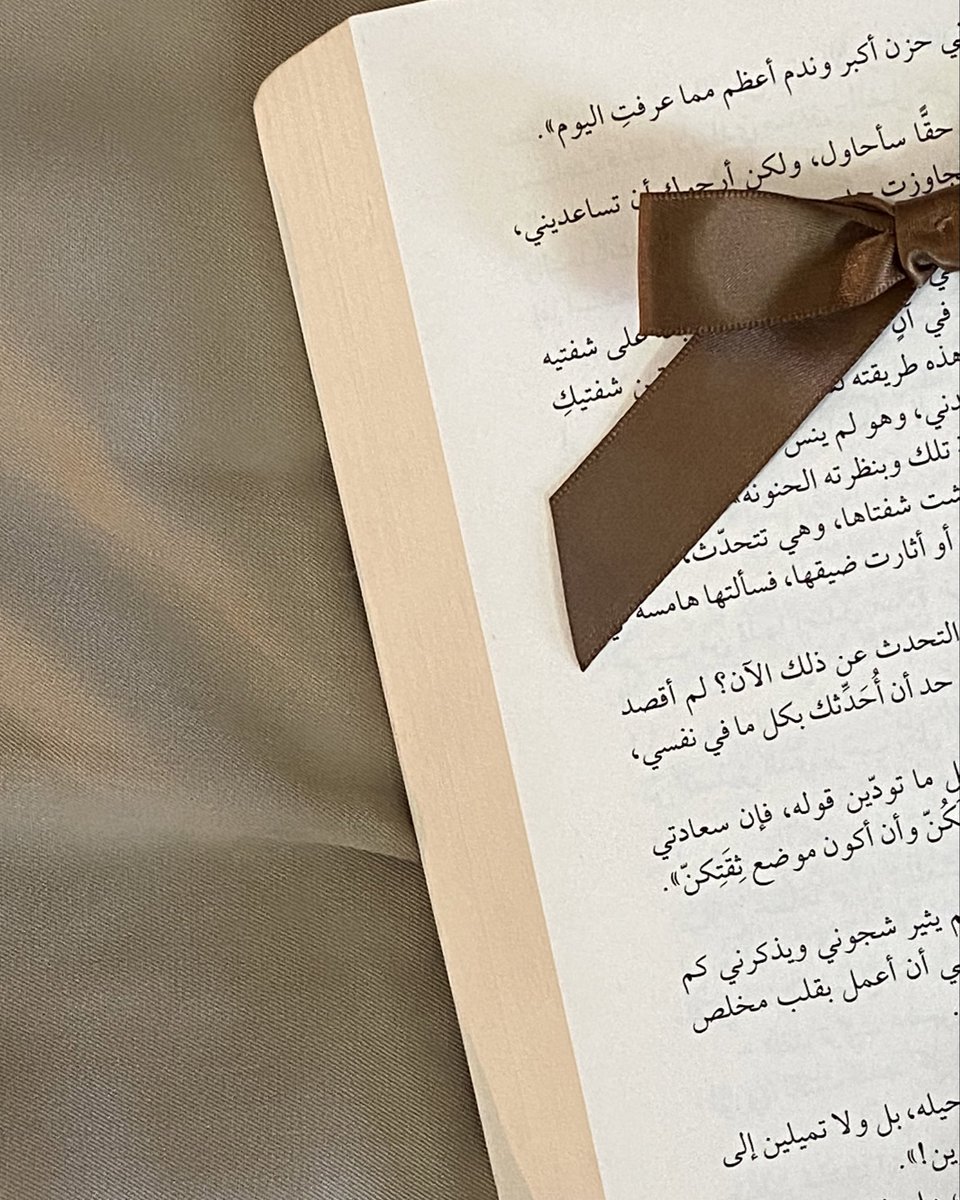 حزن أكبر وندم أعظم مما عرفتِ اليوم».
حقًّا سأحاول، ولكن أرجوك أن تساعديني،
في آنٍ على شفتيه
هذه طريقته شفتيكِ
وهو لم ينس
تلك وبنظرته الحنونة
شفتاها، وهي تتحدّث،
أو أثارت ضيقها، فسألتها هامسة
التحدث عن ذلك الآن؟ لم أقصد
حد أن أُحَدِّثك بكل ما في نفسي،
ما تودّين قوله، فإن سعادتي
وأن أكون موضع ثِقَتِكنّ».
يثير شجوني ويذكرني كم
أن أعمل بقلب مخلص
بل ولا تميلين إلى